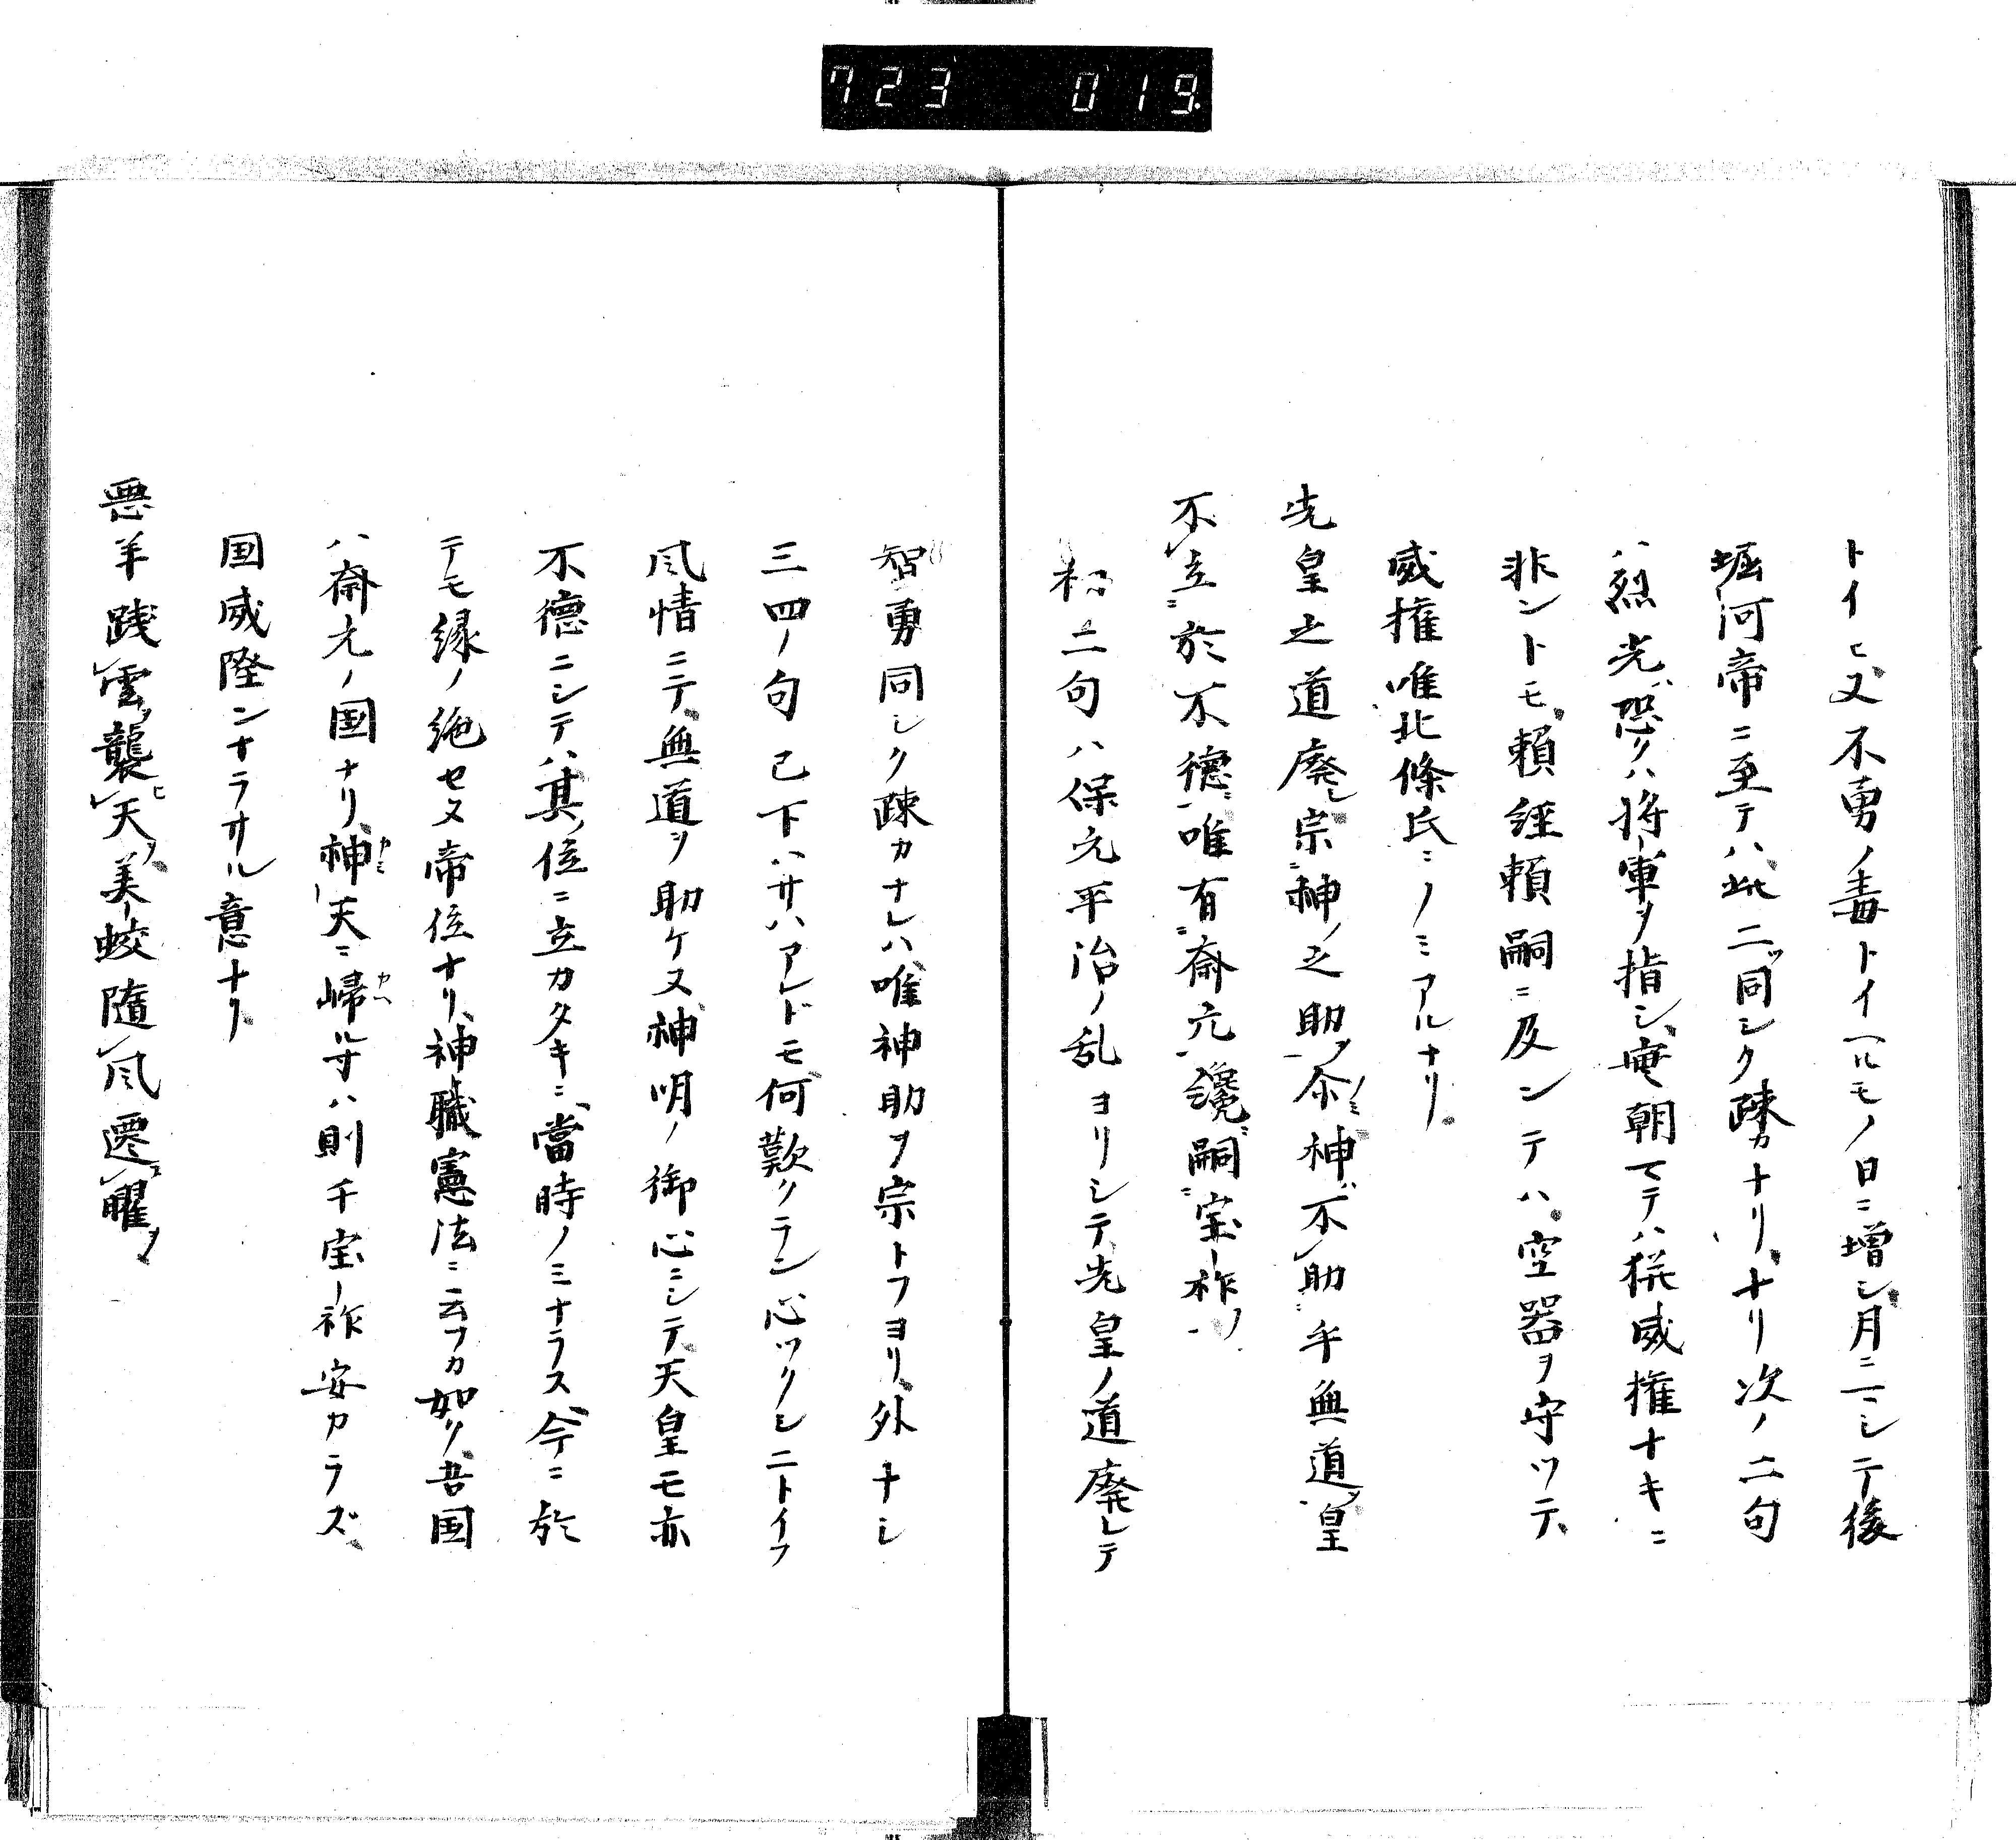 723 019
トイヒ又不勇ノ毒トイヘルモノ日ニ増シ月ニ二シテ後
堀河帝ニ至テハ此二同シク疎カナリナリ次ノ二句
ハ烈光恐クハ将軍ヲ指シ庵朝マテハ猶威権ナキニ
非ントモ頼経頼嗣ニ及ンテハ空器ヲ守ツテ
威権唯北條氏ニノミアルナリ
先皇之道廃シ宗神ノ之助ヲ尒神不助乎無道皇
不立於不徳唯有斎元纔嗣宝祚
初二句ハ保元平治ノ乱ヨリシテ先皇ノ道廃レテ
智勇同シク疎カナレハ唯神助ヲ宗トフヨリ外ナシ
三四ノ句已下ハサハアレドモ何歎クラン心ツクシニトイフ
風情ニテ無道ヲ助ケヌ神明ノ御心ニシテ天皇モ亦
不徳ニシテハ其ノ位ニ立カタキニ當時ノミナラス今ニ於
テモ縁ノ絶セヌ帝位ナリ神職憲法ニ云フカ如ク吾国
ハ斎元ノ国ナリ神天ニ帰ル寸ハ則千宝祚安カラズ
国威陞ンナラサル意ナリ
悪羊践雲襲天美蛟随風遷曜